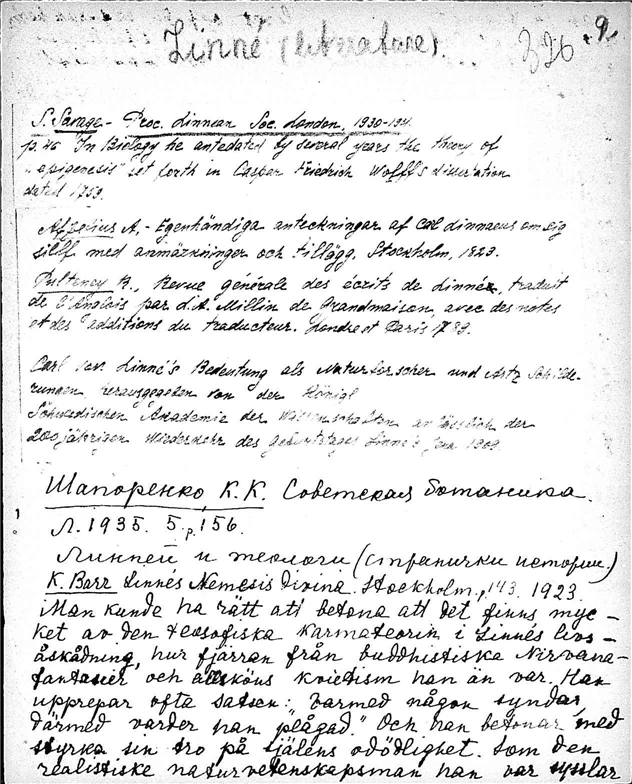 Linné (literature).
326
9.
S. Savage - Proc. Linnean Soc. London, 1930-194.
p. 46 "In Biology he antedated by several years the theory of
"epigenesis" set forth in Caspar Friedrich Wolff's dissertation
dated 1759.
Afzelius A. - Egenhändiga anteckningar af Carl Linnaeus om sig
sjelf med anmärkninger och tillägg. Stockholm, 1823.
Pulteney R., Revue générale des écrits de Linnée, traduit
de l'Anglois par L.A. Millin de Grandmaison, avec des notes
et des additions du traducteur. Londre et Paris 1789.
Carl von Linné's Bedeutung als Naturforscher und Artz Schilde-
rungen, herausgegeben von der Königl
Schwedischen Akademie der Wissenschaften anlässlich der
200 jährigen Wiederkehr des Geburtstages Linné's Jena 1909.
Шапоренко К. К. Советская ботаника.
Л. 1935. 5, p. 156.
Линней и теологи (странички истории.)
K. Barr Linnés Nemesis Divina. Stockholm, p. 143. 1923.
Man kunde ha rätt att betona att det finns myc-
ket av den teosofiska karmateorin i Linnés livs-
åskådning, hur fjärran från buddhistiska Nirvana-
fantasier och allsköns kvietism han än var. Han
upprepar ofta satsen: "varmed någon syndar,
därmed varder han plågad." Och han betonar med
styrka sin tro på själens odödlighet. Som den
realistiske naturvetenskapsman han var sysslar